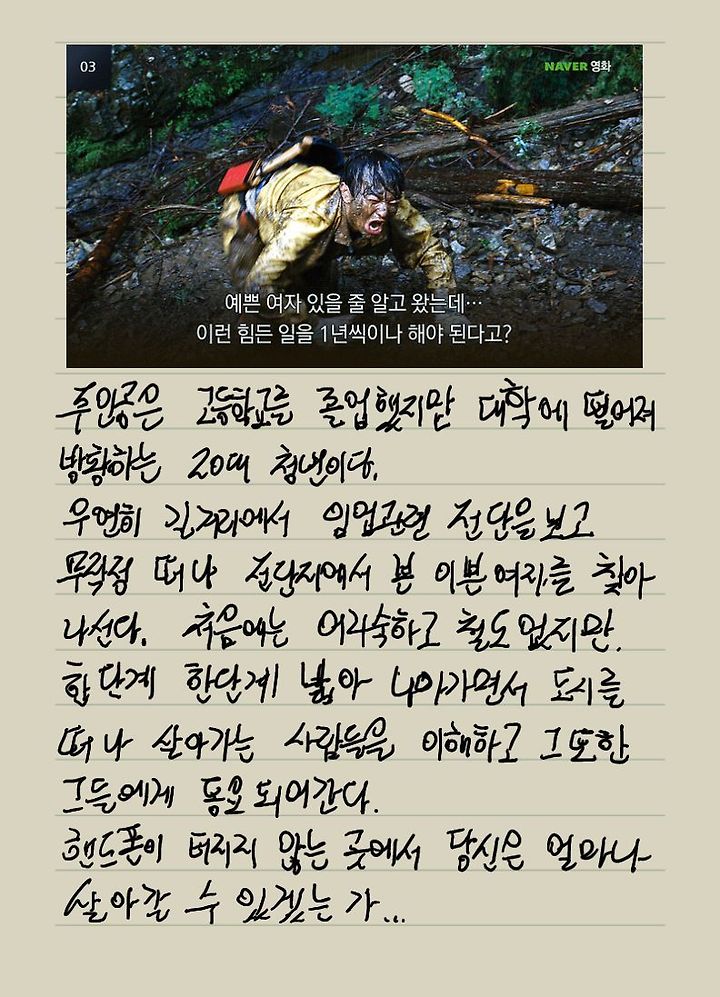 03
NAVER 영화
예쁜 여자 있을 줄 알고 왔는데…
이런 힘든 일을 1년씩이나 해야 된다고?
주인공은 고등학교를 졸업했지만 대학에 떨어져
방황하는 20대 청년이다.
우연히 길거리에서 임업관련 전단을 보고
무작정 떠나 전단지에서 본 이쁜 여자를 찾아
나선다. 처음에는 어리숙하고 철도 없지만.
한단계 한단계 밟아 나아가면서 도시를
떠나 살아가는 사람들을 이해하고 그 또한
그들에게 동요되어간다.
핸드폰이 터지지 않는 곳에서 당신은 얼마나
살아갈 수 있겠는가...